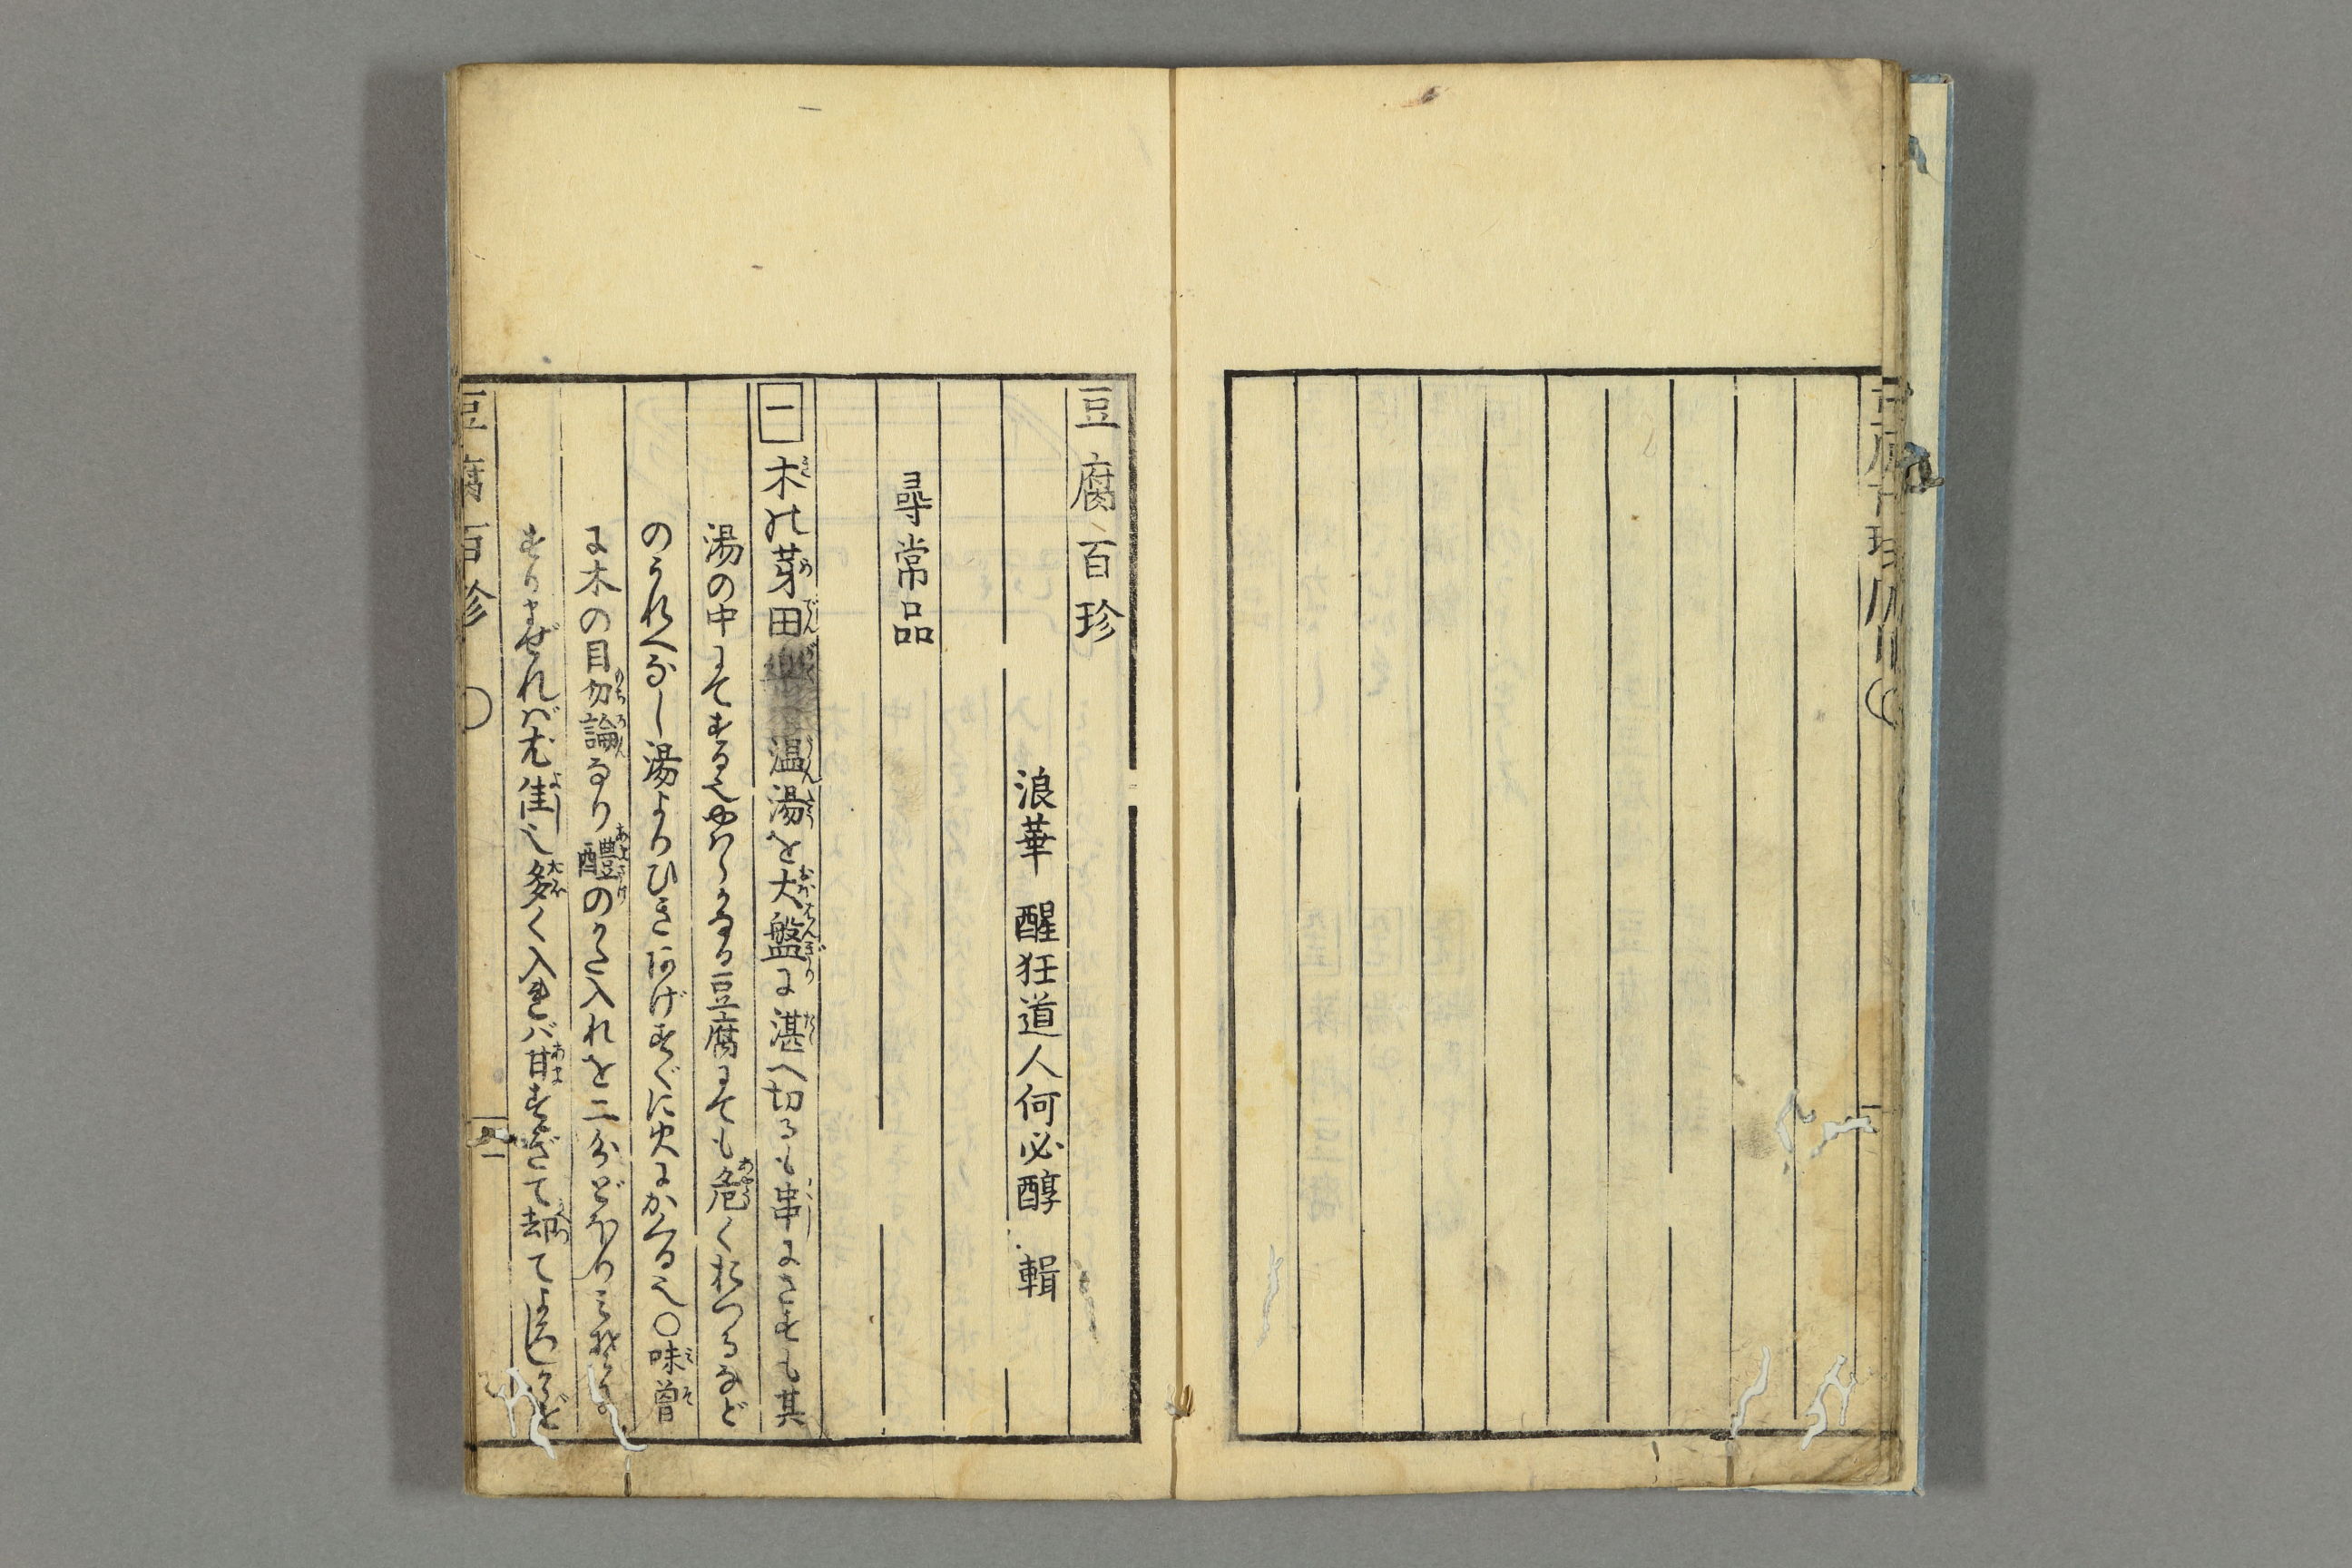 豆腐百珍
浪華 醒狂道人何必醇 輯
尋常品
一 木の芽田楽 温湯を大盤に湛へ切るも串にさすも其
湯の中にてする也やはらかなる豆腐にても危くおつるなど
のうれへなし湯よりひきあげすぐに火にかくる也○味曽
に木の目勿論なり醴のかた入れを二分どほりみそに
すりまぜれば尤佳し也多く入ればバ甘すぎて却てよろしからず
豆腐百珍